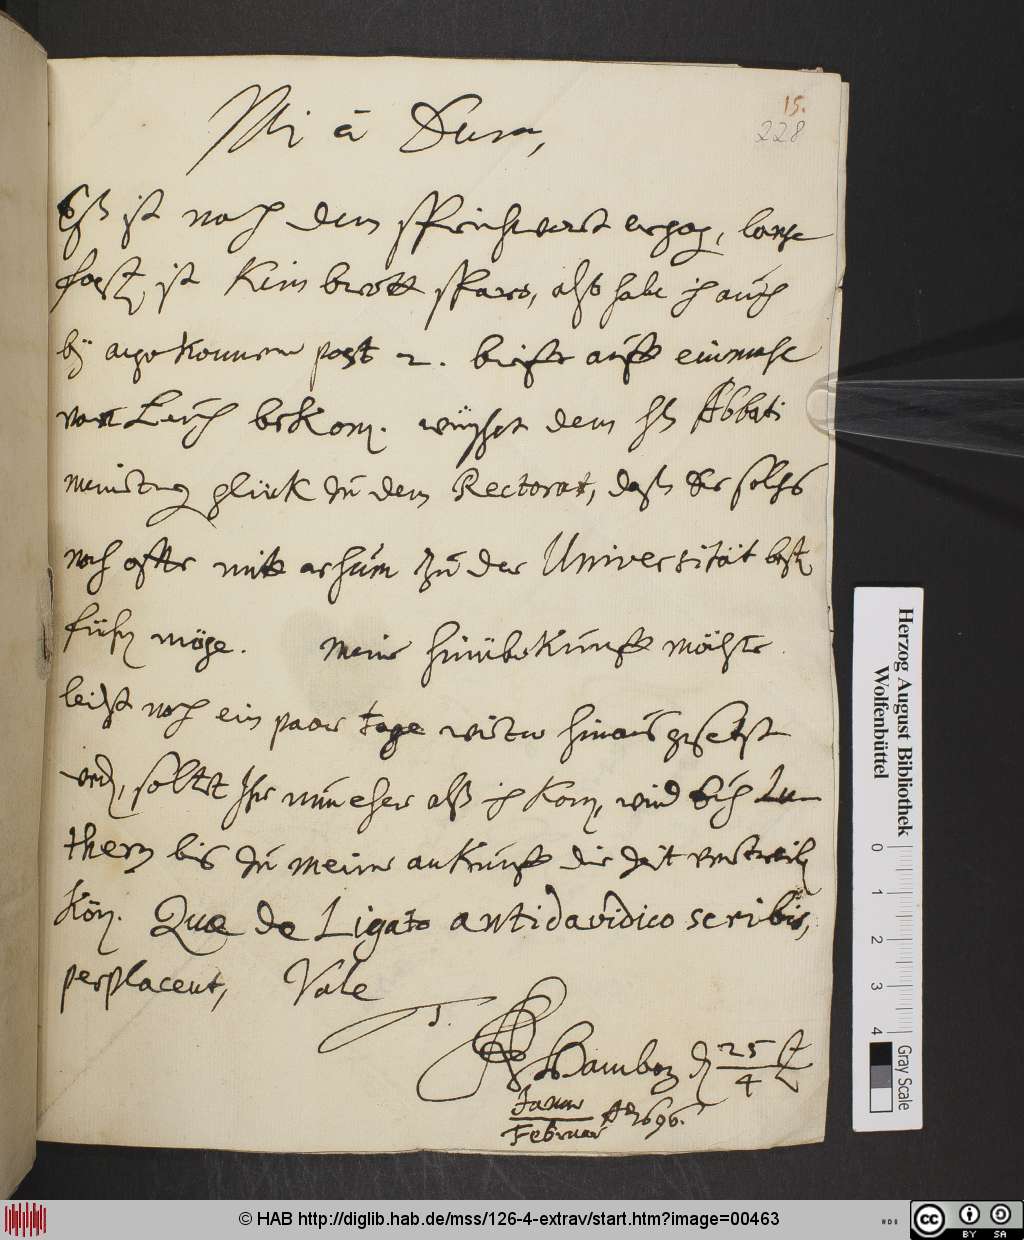 Mi à Dum,
15.
228
Eß ist noch dem sprichwort ergag, lange
fast ist kein brott spare, alß habe ich auch
bÿ angekommener post 2. briefe auff einmahl
von Lerch bekom. wünschet dem H. Abbati
meinetweg glück zu dem Rectorat, daß Er solches
noch offter mitt ruhm zu der Universität best
führ möge. Meine hinüberkunfft möchte
leicht noch ein paar tage weiter hinaus gesetzt
werd, sollet Ihr nun eher alß ich kom, wird Euch Lu-
thern bis zu meiner ankunfft die Zeit
kön. Quæ de Ligato antidavidico scribis,
perplacent, Vale
T.
Bamberg d 25/4
Januar/Februar Aº 1696.
Herzog August Bibliothek
Wolfenbüttel
0 1 2 3 4
Gray Scale
© HAB http://diglib.hab.de/mss/126-4-extrav/start.htm?image=00463
cc BY SA